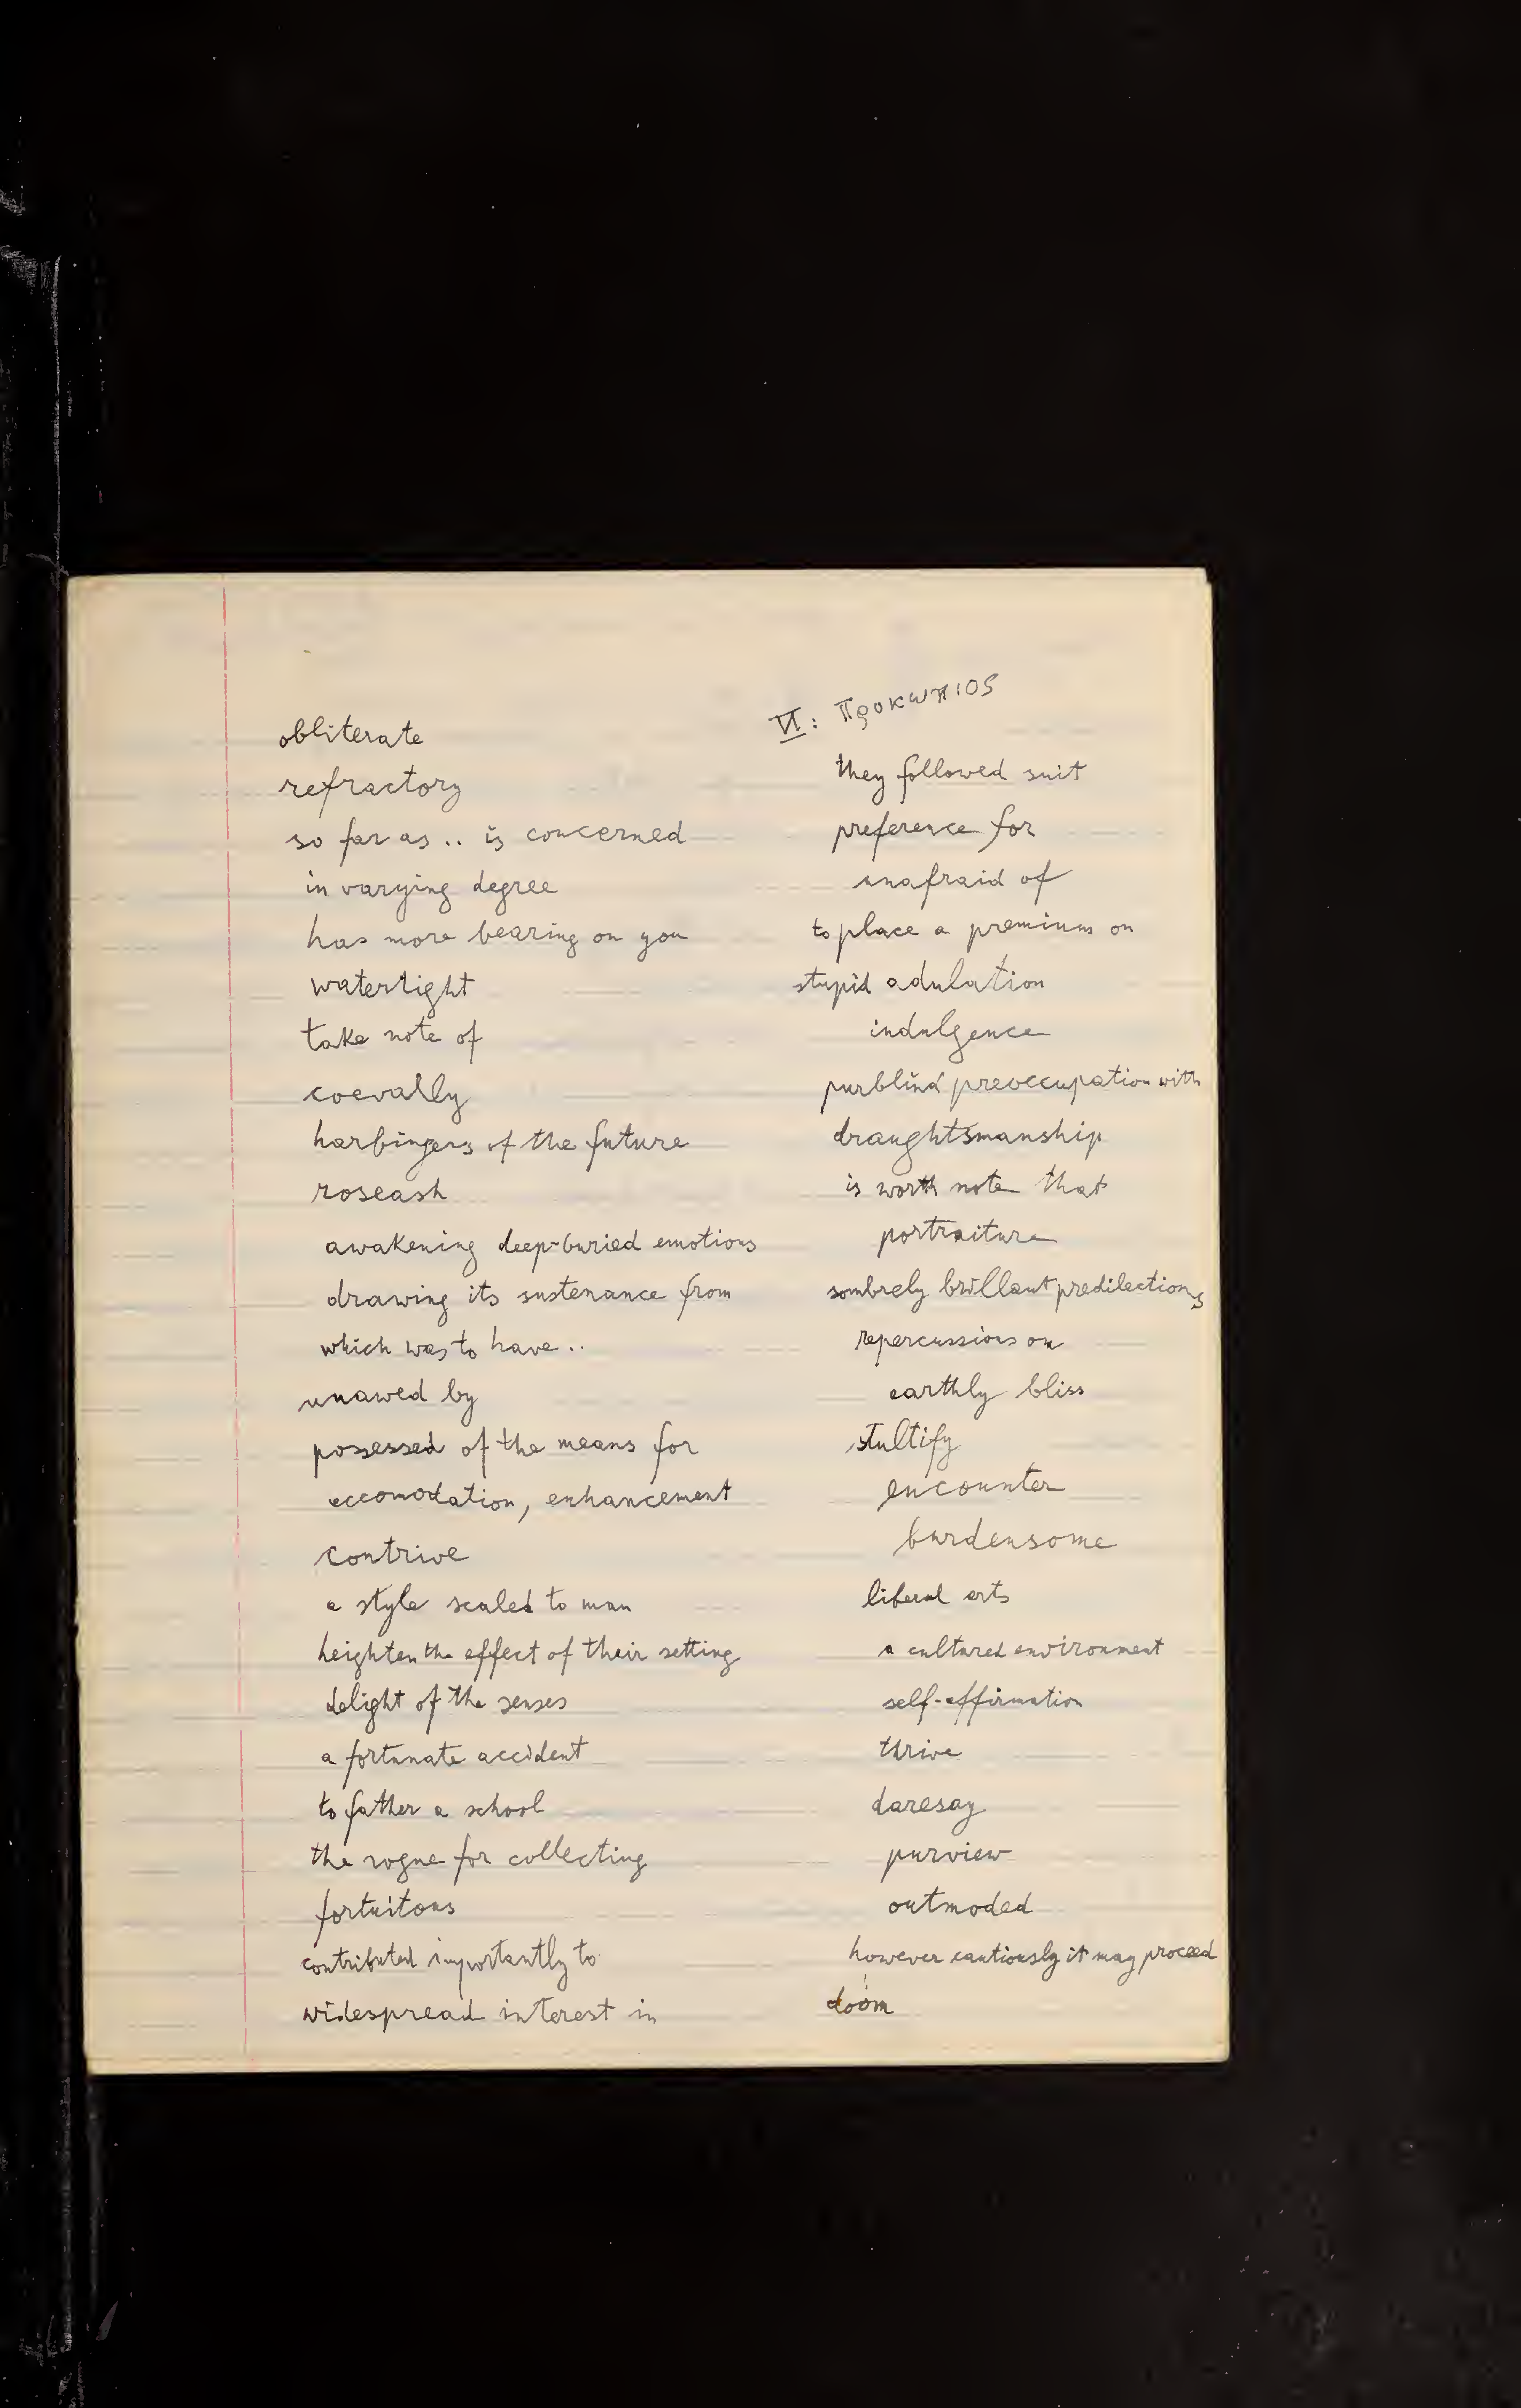 obliterate
refractory
so far as .. is concerned
in varying degree
has more bearing on you
watertight
take note of
coevally
harbingers of the future
roseash
awakening deep-buried emotions
drawing its sustenance from
which was to have ..
unawed by
possessed of the means for
accomodation, enhancement
contrive
a style scaled to man
heighten the effect of their setting
delight of the senses
a fortunate accident
to father a school
the vogue for collecting
fortuitous
contributed importantly to
widespread interest in
VI: Προκωπιος
they followed suit
preference for
unafraid of
to place a premium on
stupid adulation
indulgence
purblind preoccupation with
draughtsmanship
is worth note that
portraiture
sombrely brillant predilections
repercussions on
earthly bliss
stultify
encounter
burdensome
liberal arts
a cultured environment
self-affirmation
thrive
daresay
purview
outmoded
however cautiously it may proceed
doom